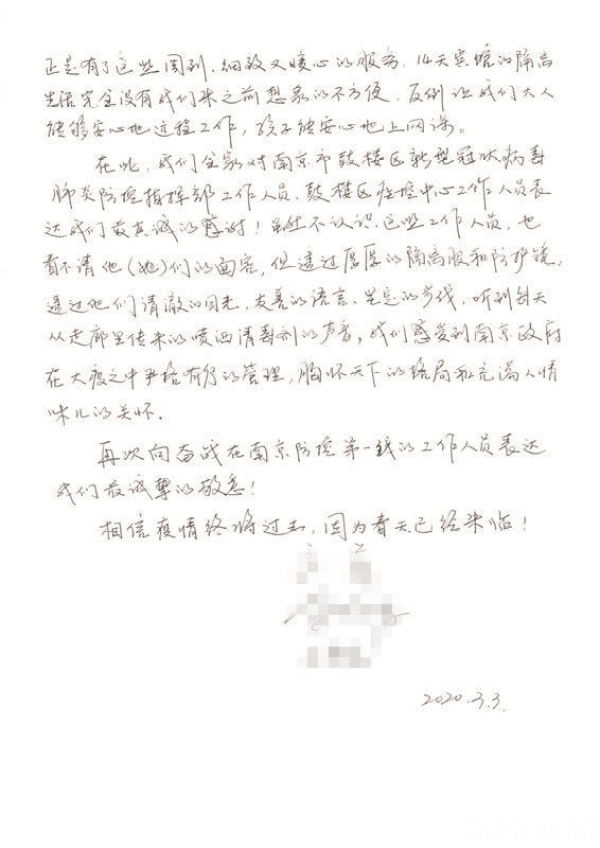 正是有了这些周到、细致又暖心的服务，14天宾馆的隔离
生活完全没有我们来之前想象的不方便，反倒让我们大人
能够安心地远程工作，孩子能安心地上网课。
在此，我们全家对南京市鼓楼区新型冠状病毒
肺炎防控指挥部工作人员、鼓楼区疾控中心工作人员表
达我们最真诚的感谢！虽然不认识这些工作人员，也
看不清他(她)们的面容，但透过厚厚的隔离服和防护镜，
透过他们清澈的目光，友善的语言、坚定的步伐，听到每天
从走廊里传来的喷洒消毒剂的声音，我们感受到南京政府
在大疫之中严格有序的管理，胸怀天下的格局和充满人情
味儿的关怀。
再次向奋战在南京防控第一线的工作人员表达
我们最诚挚的敬意！
相信疫情终将过去，因为春天已经来临！
2020.3.3